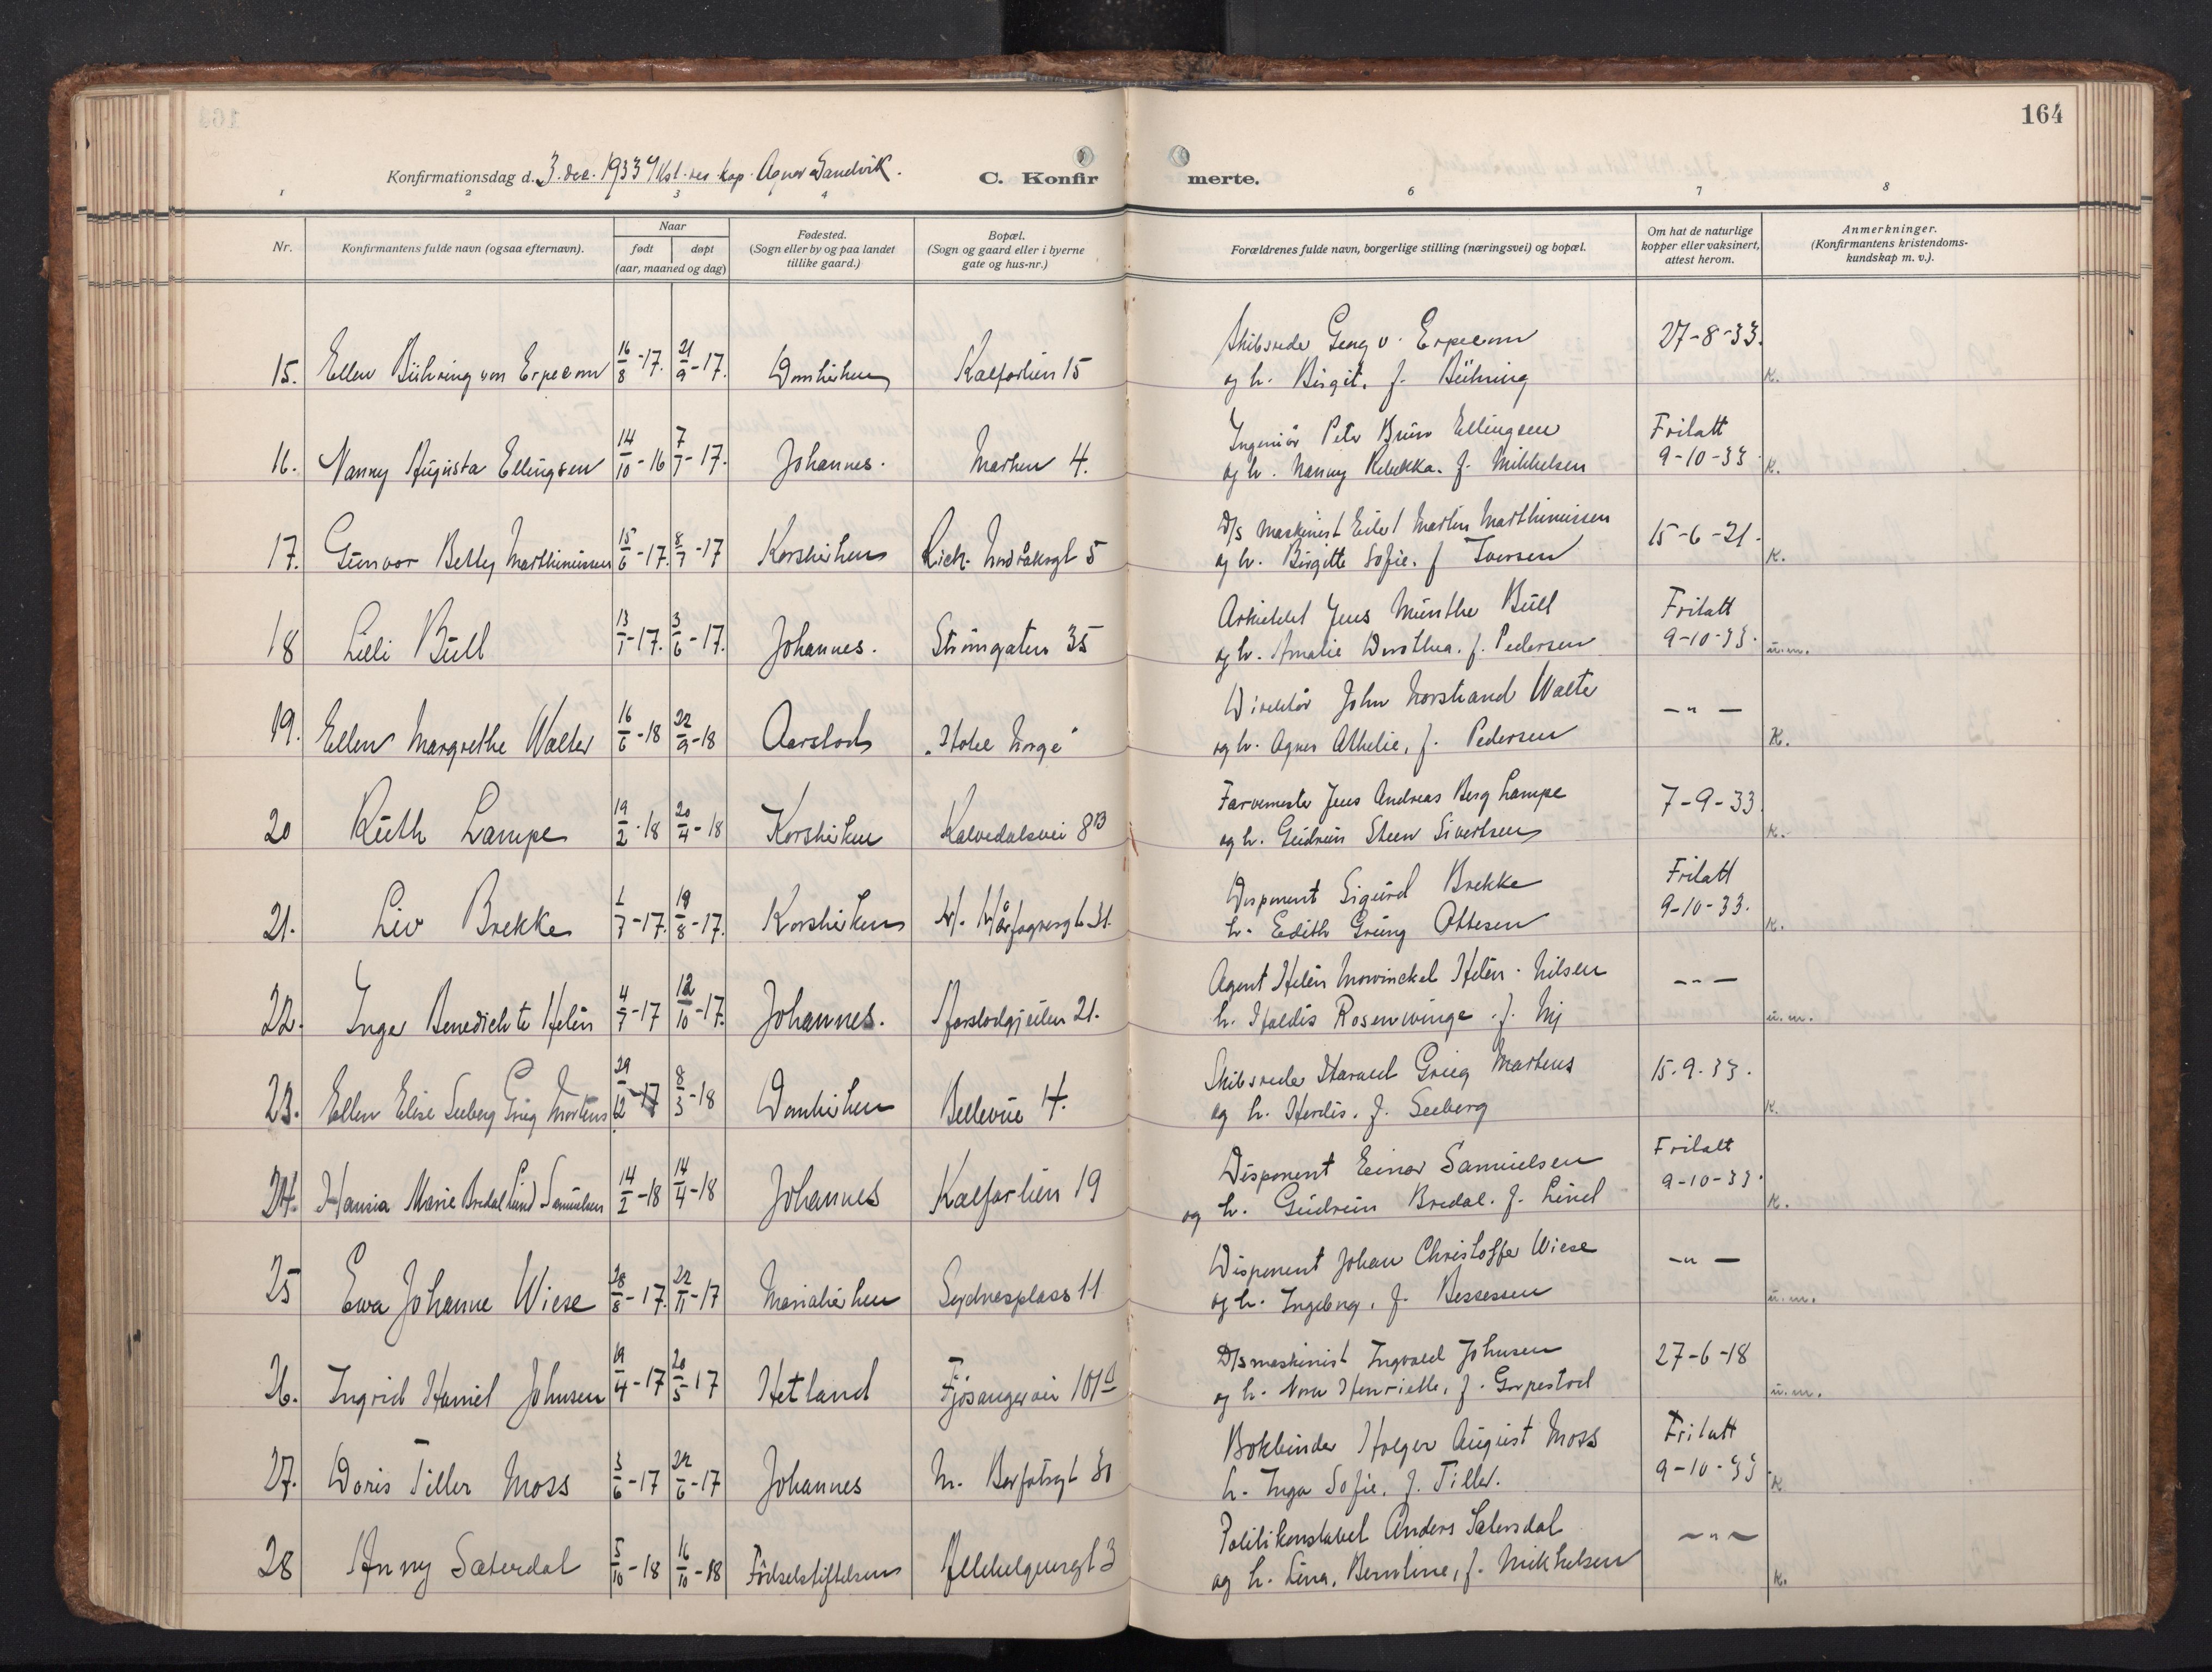 164
Konfirmationsdag d. 3. dec. 1933 v/ Kst. res. kap. Agnar Sandvik.
C. Konfirmerte.
1 2 3 4 6 7 8
Nr.
Konfirmantens fulde navn (ogsaa efternavn).
Naar
født døpt
(aar, maaned og dag)
Fødested.
(Sogn eller by og paa landet
tillike gaard.)
Bopæl.
(Sogn og gaard eller i byerne
gate og hus-nr.)
Forældrenes fulde navn, borgerlige stilling (næringsvei) og bopæl.
Om hat de naturlige
kopper eller vaksinert,
attest herom.
Anmerkninger.
(Konfirmantens kristendoms-
kundskap m. v.).
Skibsreder Georg v. Erpecom 27-8-33.
15. Ellen Bühring von Erpecom 16/8-17. 21/9-17. Domkirken Kalfarlien 15 og h. Birgit. f. Bühring K.
Ingeniør Peter Bruun Ellingsen Fritatt
16. Nanny Augusta Ellingsen 14/10-16 7/7-17. Johannes. Marken 4. og h. Nanny Rebekka. f. Mikkelsen 9-10-33. K.
D/s maskinist Eilert Martin Marthinussen 15-6-21.
17. Gunvor Betty Marthinussen 15/6-17. 8/7-17 Korskirken Rich. Nordråksgt 5 og h. Birgitte Sofie. f Iversen K.
Arkitekt Jens Münthe Bull Fritatt
18 Lilli Bull 13/1-17. 3/6-17. Johannes. Strømgaten 35 og h. Amalie Dorothea. f. Pedersen 9-10-33. u.m.
Direktør John Norstrand Walter -"-
19. Ellen Margrethe Walter 16/6-18 22/9-18 Aarstad "Hotel Norge" og h. Agnes Athelie, f. Pedersen K.
Farvemester Jens Andreas Berg Lampe 7-9-33
20 Ruth Lampe 19/2-18 20/4-18 Korskirken Kalvedalsvei 8B og h. Gudrun Steen Sivertsen K.
Disponent Sigurd Brekke Fritatt
21. Liv Brekke 1/7-17. 19/8-17. Korskirken H. Hårfagresgt 31. h. Edith Grung Ottesen 9-10-33. K.
Agent Helén Mowinckel Helén-Nilsen -"-
22. Inge Benedichte Helén 4/7-17 12/10-17. Johannes. 21. h. Haldis Rosenwinge f. Nij u.m.
Skibsreder Harald Grieg Martens 15.9.33.
23. Ellen Elise Seeberg Grieg Martens 29/12-17 8/3-18 Domkirken Bellevue 4. og h. Herdis. f. Seeberg K.
Disponent Einar Samuelsen Fritatt
24. Hansia Marie Bredal Lund Samuelsen 14/2-18 14/4-18 Johannes Kalfarlien 19 og h. Gudrun Bredal. f. Lund 9-10-33. K.
Disponent Johan Christoffer Wiese -"-
25 Ewa Johanne Wiese 28/8-17. 22/11-17 Mariakirken Sydnesplass 11 og h. Ingeborg, f. Bessesen u.m.
D/s maskinist Ingvald Johnsen 27-6-18
26. Ingrid Hamel Johnsen 19/4-17 20/5-17 Hetland Fjøsangervei 101 og h. Nora Henriette, f. Gorpestad u.m.
Bokbinder Holger August Moss Fritatt
27. Doris Tiller Moss 3/6-17 22/6-17 Johannes N. 30 h. Inga Sofie. f. Tiller. 9-10-33. K
Politikonstabel Anders Sætersdal -"-
28 Anny Sæterdal 5/10-18 16/10-18 Fødselstiftelsen Allehelgensgt 3 og h. Lina, Berntine, f. Mikkelsen K.